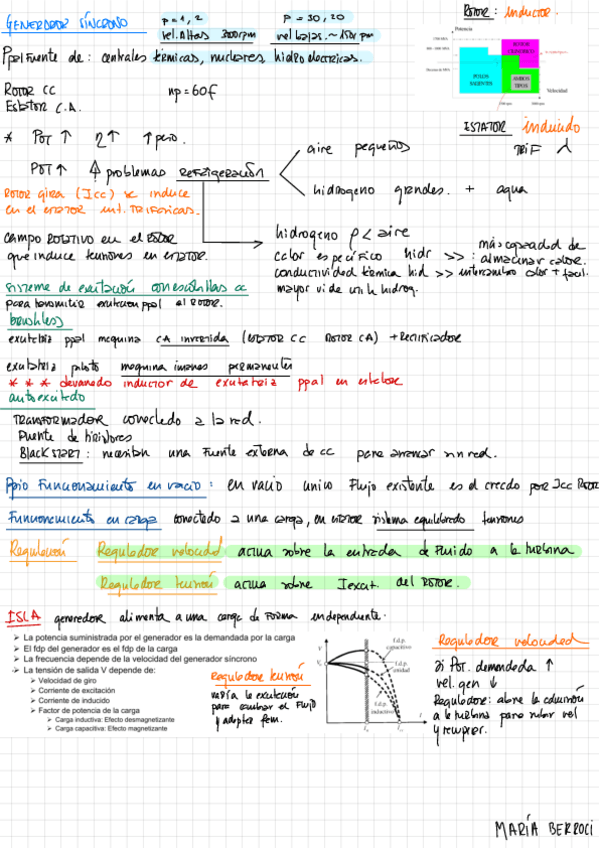 GENERADOR SÍNCRONO
p = 1, 2
vel. Altas 3000rpm
p = 30, 20
vel bajas. ~ 150r pm
ROTOR: inductor.
Ppal Fuente de: centrales térmicas, nucleares, hidroeléctricas.
Potencia
ROTOR CILÍNDRICO
POLOS SALIENTES
AMBOS TIPOS
Velocidad
ROTOR CC
Estator C.A.
np = 60f
ESTATOR inducido
TRIF
* POT ↑ η ↑ ↑ peso.
POT ↑ problemas REFRIGERACIÓN
aire pequeños
hidrogeno grandes. + agua
ROTOR gira (Icc) induce
en el estator int. TRIFásicas.
hidrogeno ρ < aire
calor específico hidr >> : más capacidad de almacenar calor.
conductividad térmica hid >> intercambio calor + facil.
mayor vida útil hidrog.
CAMPO ROTATIVO en el
que induce tensiones en estator.
sistema de excitación con escobillas cc
para transmitir excitación ppal al ROTOR.
brushless
excitatriz ppal maquina CA invertida (ESTATOR CC ROTOR CA) + Rectificador
excitatriz piloto maquina imanes permanentes
* * * devanado inductor de excitatriz ppal en estator
autoexcitado
TRANSFORMADOR conectado a la red.
Puente de tiristores
BLACK START: necesitan una fuente externa de cc para arrancar sin red.
Ppio Funcionamiento en vacío: en vacío único Flujo existente es el creado por Icc ROTOR
Funcionamiento en carga conectado a una carga, en estator sistema equilibrado tensiones
Regulación Regulador velocidad actua sobre la entrada de Fluido a la turbina
Regulador tensión actua sobre Iexcit. del ROTOR.
ISLA generador alimenta a una carga de forma independiente.
➢ La potencia suministrada por el generador es la demandada por la carga
➢ El fdp del generador es el fdp de la carga
➢ La frecuencia depende de la velocidad del generador síncrono
➢ La tensión de salida V depende de:
➢ Velocidad de giro
➢ Corriente de excitación
➢ Corriente de inducido
➢ Factor de potencia de la carga
➢ Carga inductiva: Efecto desmagnetizante
➢ Carga capacitiva: Efecto magnetizante
Regulador tensión
varía la excitación
para cambiar el Flujo
y adaptar fem.
V
f.d.p. capacitivo
f.d.p. unidad
f.d.p. inductivo
I
Regulador velocidad
Si Pot. demandada ↑
vel. gen ↓
Regulador: abre la admisión
a la turbina para subir vel
y recuperar.
MARÍA BERROCI